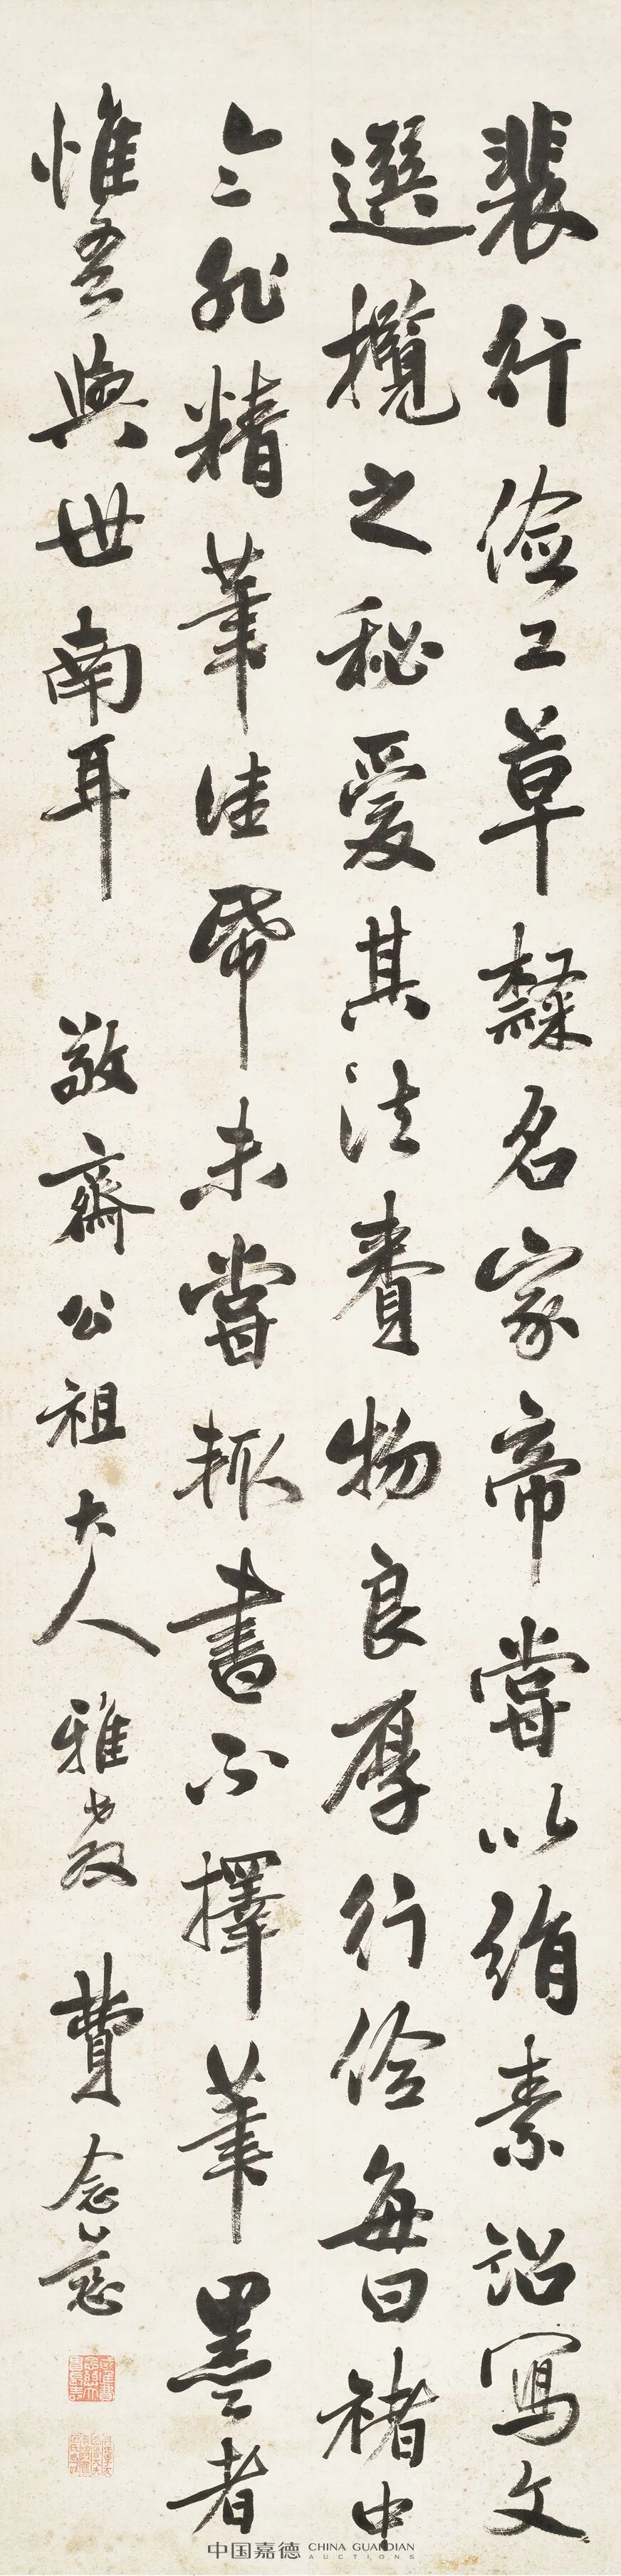 裴行儉工草隸名家帝嘗以絹素詔寫文
選攬之秘愛其法賚物良厚行儉每曰褚中
令非精筆佳帋未嘗輒書不擇筆墨者
惟吾與世南耳 敬齋公祖大人雅教 費念慈
中国嘉德 CHINA GUARDIAN
AUCTIONS